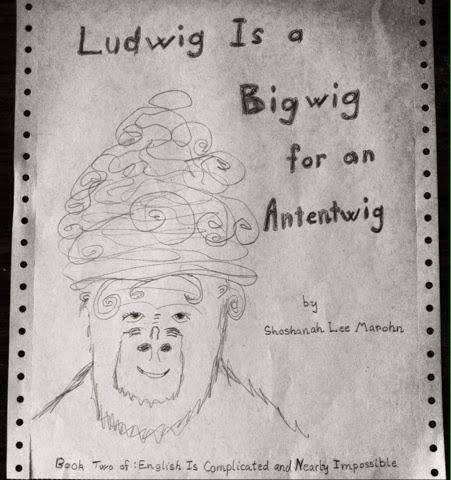 Ludwig Is a
Bigwig
for an
Antentwig
by
Shoshanah Lee Marohn
Book Two of : English Is Complicated and Nearly Impossible